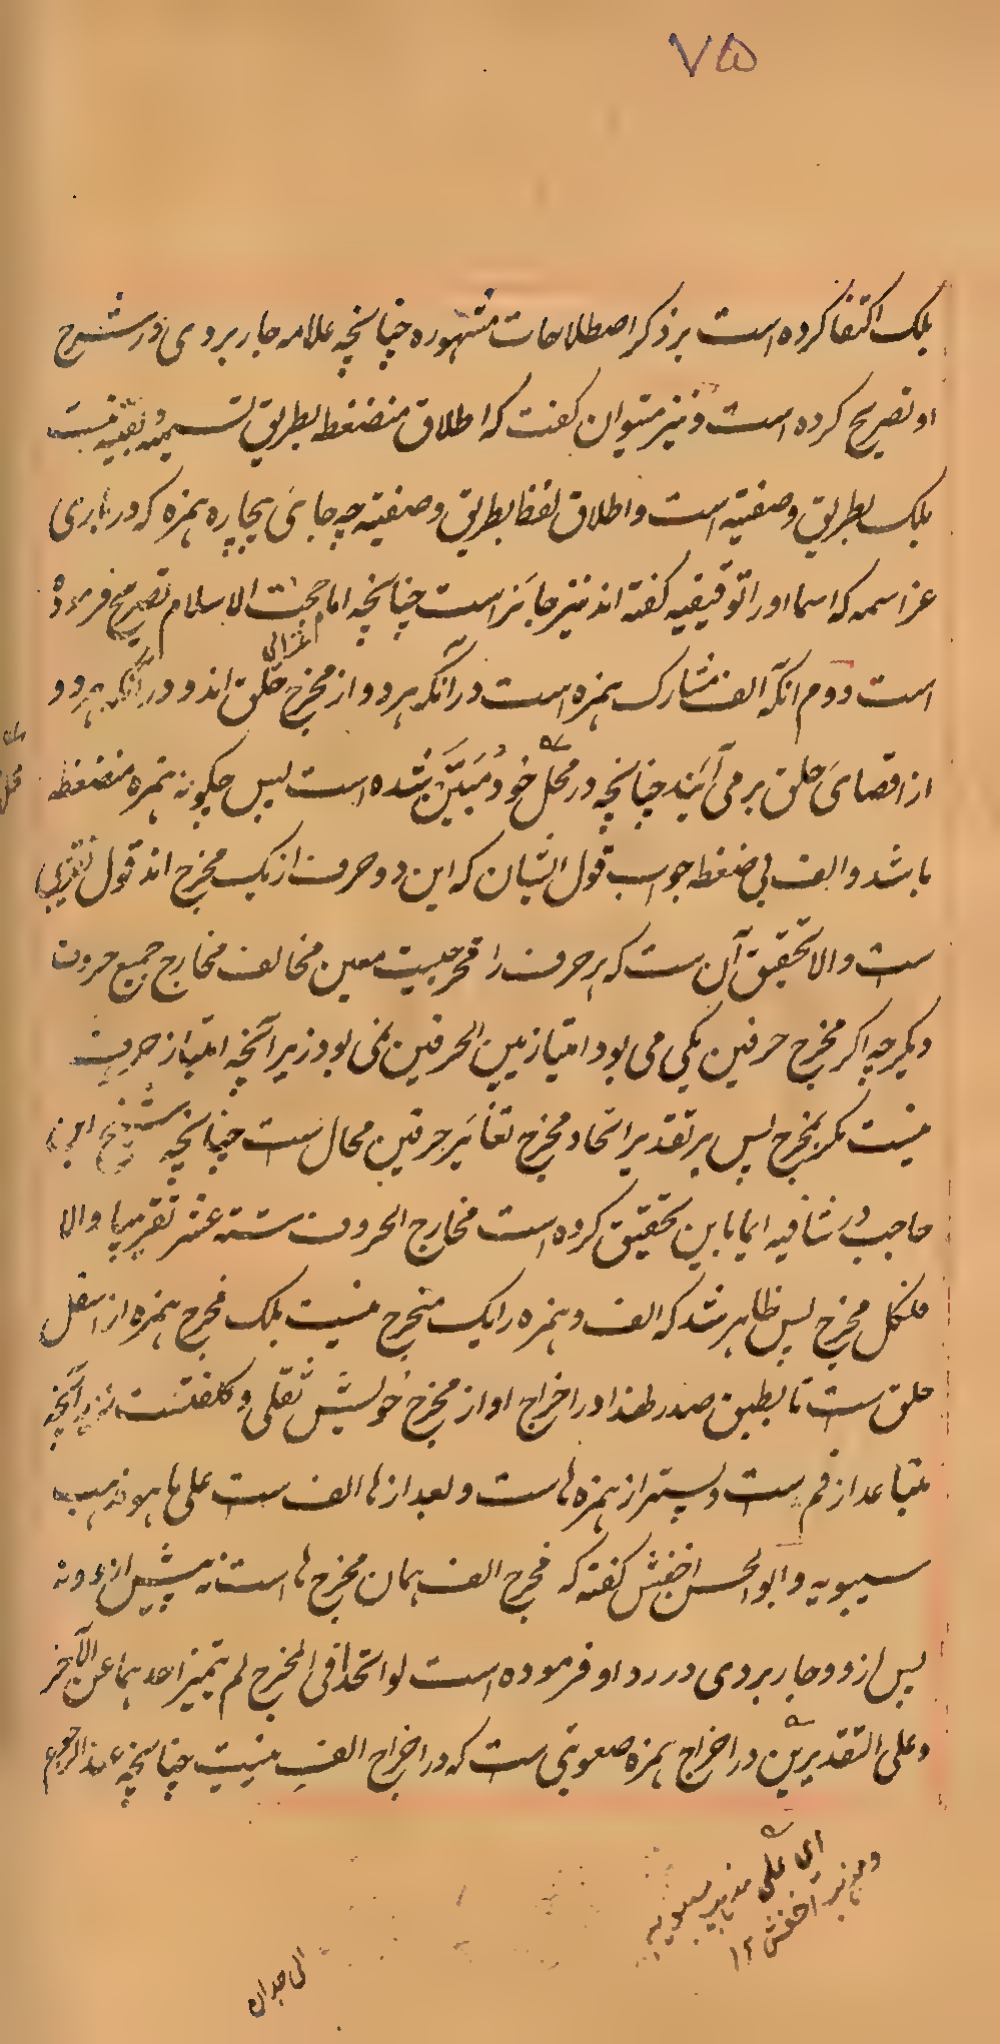 ۷۵
بلکه اکتفا کرده است بر ذکر اصطلاحات مشهوره چنانچه علامه جاربردی در شرح
او تصریح کرده است و نیز میتوان کفت که اطلاق منضغطه بطریق تسمیه و تقیه نیست
بلکه بطریق وصفیته است و اطلاق لفظ بطریق وصفیته چه جای بیچاره همزه که در باری
عز اسمه که اسما او را توقیفیه کفته اند نیز جایز است چنانچه امام حجت الاسلام تصریح فرموده
غزالی
است دوم آنکه الف مشارک همزه است در آنکه هر دو از مخرج حلق اند و در آنکه هر دو
از اقصای حلق بر می آیند چنانچه در محل خود مبین شده است پس چکونه همزه منضغطه
باشد و الف بی ضغطه جواب قول ایشان که این دو حرف از یک مخرج اند قول تقریبی
ست والا تحقیق آن ست که هر حرف را مخرجیست معین مخالف مخارج جمیع حروف
دیکر چه اکر مخرج حرفین یکی می بود امتیاز بین الحرفین نمی بود زیرا آنچه امتیاز حروف
نیست مکر بمخرج پس بر تقدیر اتحاد مخرج تغایر حرفین محال ست چنانچه شیخ ابن
حاجب در شافیه ایما باین تحقیق کرده است مخارج الحروف ستة عشر تقریبا والا
فلکل مخرج پس ظاهر شد که الف و همزه را یک مخرج نیست بلکه مخرج همزه از اسفل
حلق ست تا بطبق صدر لهذا در اخراج او از مخرج خویش ثقلی و کلفتست زیرا آنچه
متباعد از فم ست و پستر از همزه ها ست و بعد از ها الف ست علی ما هو مذهب
سیبویه و ابو الحسن اخفش کفته که مخرج الف همان مخرج ها است نه پیش ازو و نه
پس ازو و جاربردی در رد او فرموده است لو اتحدا فی المخرج لم یتمیز احدهما عن الآخر
و علی التقدیرین در اخراج همزه صعوبتی ست که در اخراج الف نیست چنانچه عند الرجوع
ای علی مذهب سیبویه
و مذهب اخفش ۱۲
الی وجدان